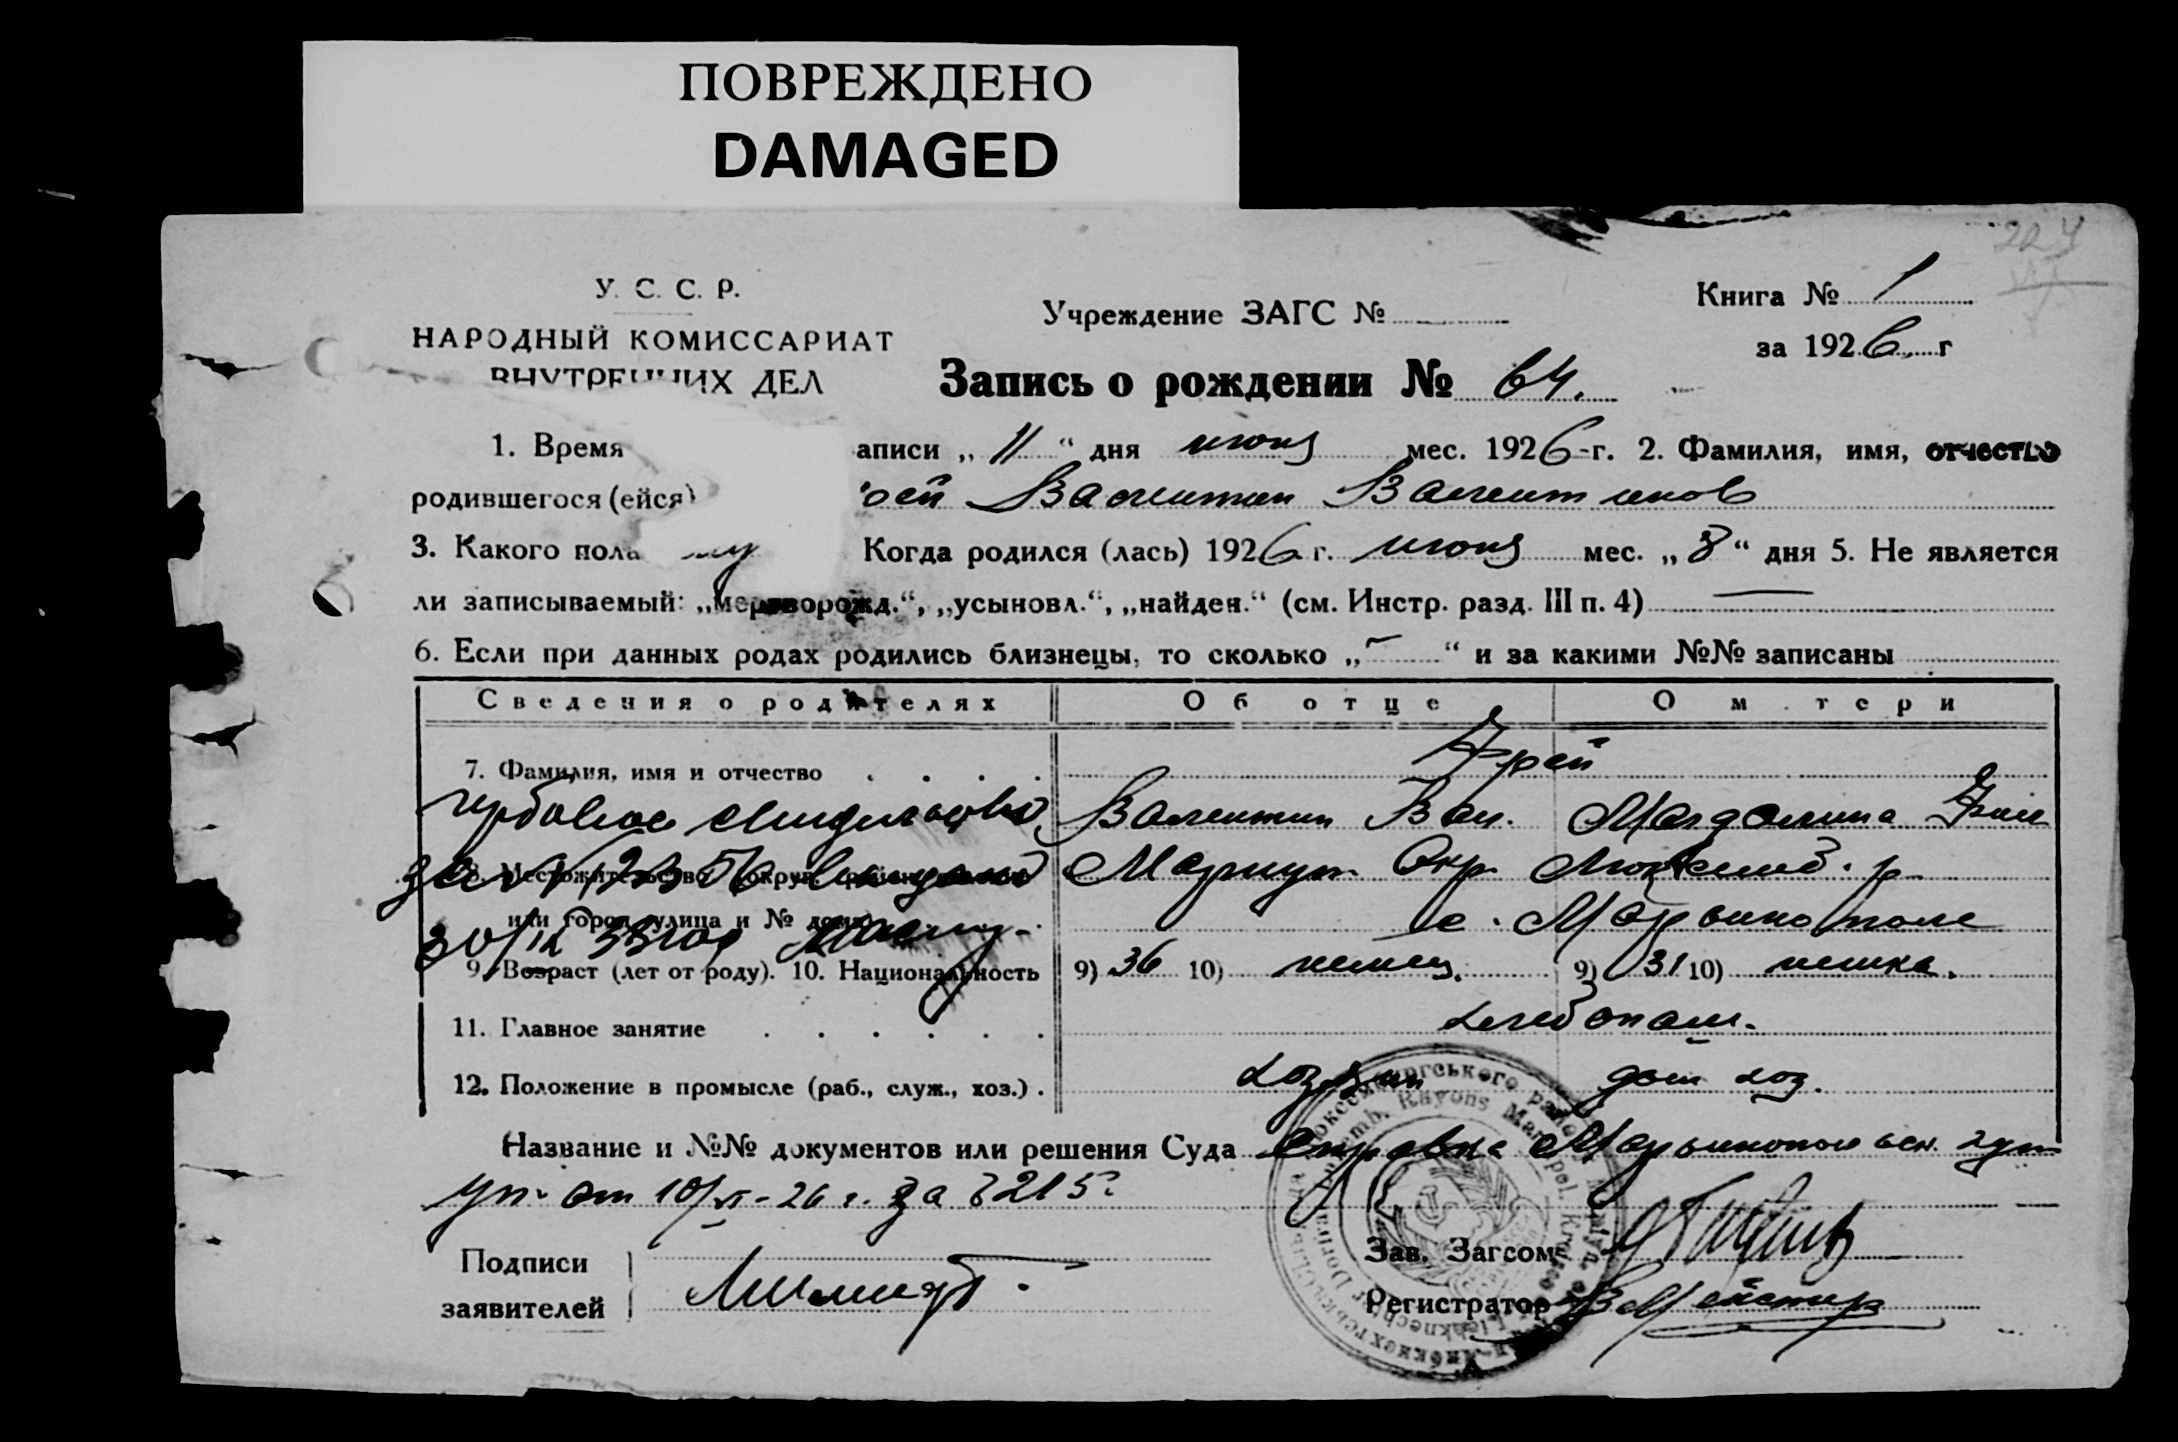 ПОВРЕЖДЕНО
DAMAGED
У. С. С. Р.
НАРОДНЫЙ КОМИССАРИАТ
ВНУТРЕННИХ ДЕЛ
Учреждение ЗАГС №
Книга № 1
за 1926 г
Запись о рождении № 64.
1. Время аписи „ 11 “ дня июня мес. 1926-г. 2. Фамилия, имя, отчество
родившегося (ейся) рей Валентин Валентинов
3. Какого пола му Когда родился (лась) 1926 г. июня мес. „ 8 “ дня 5. Не является
ли записываемый: „мертворожд.“, „усыновл.“, „найден.“ (см. Инстр. разд. III п. 4) —
6. Если при данных родах родились близнецы, то сколько „ - “ и за какими №№ записаны
Сведения о родителях Об отце О м тери
7. Фамилия, имя и отчество Фрей
Гербовое свидетельство Валентин Вал. Магдалина
8. Местожительство Мариуп. Окр. Люксемб. р.
или город, улица и № дома с. Марьинополе
9. Возраст (лет от роду). 10. Национальность 9) 36 10) немец. 9) 31 10) немка.
11. Главное занятие хлебопаш.
12. Положение в промысле (раб., служ., хоз.) хозяин дом хоз.
Название и №№ документов или решения Суда Справка Марьинопольск.
уп. от 10/VI - 26 г. за № 215
Подписи
заявителей
Зав. Загсом
Регистратор